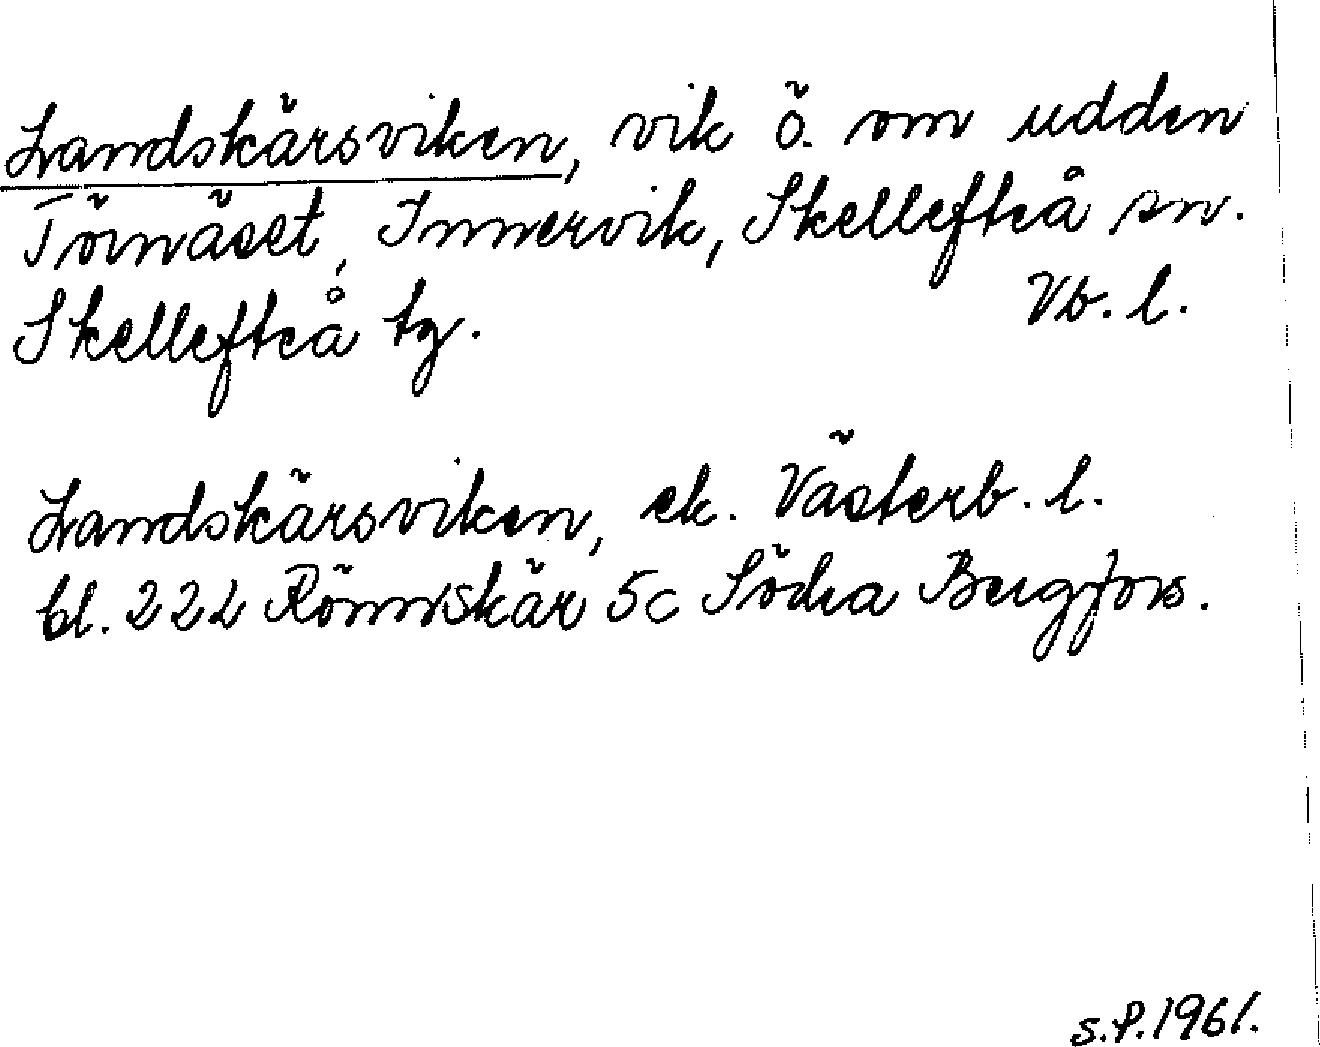 Landskärsviken, vik ö. om udden
Törnäset, Innervik, Skellefteå sn.
Skellefteå tg. Vb. l.
Landskärsviken, ek. Västerb. l.
bl. 222 Rönnskär 5c Södra Bergfors.
S.P. 1961.